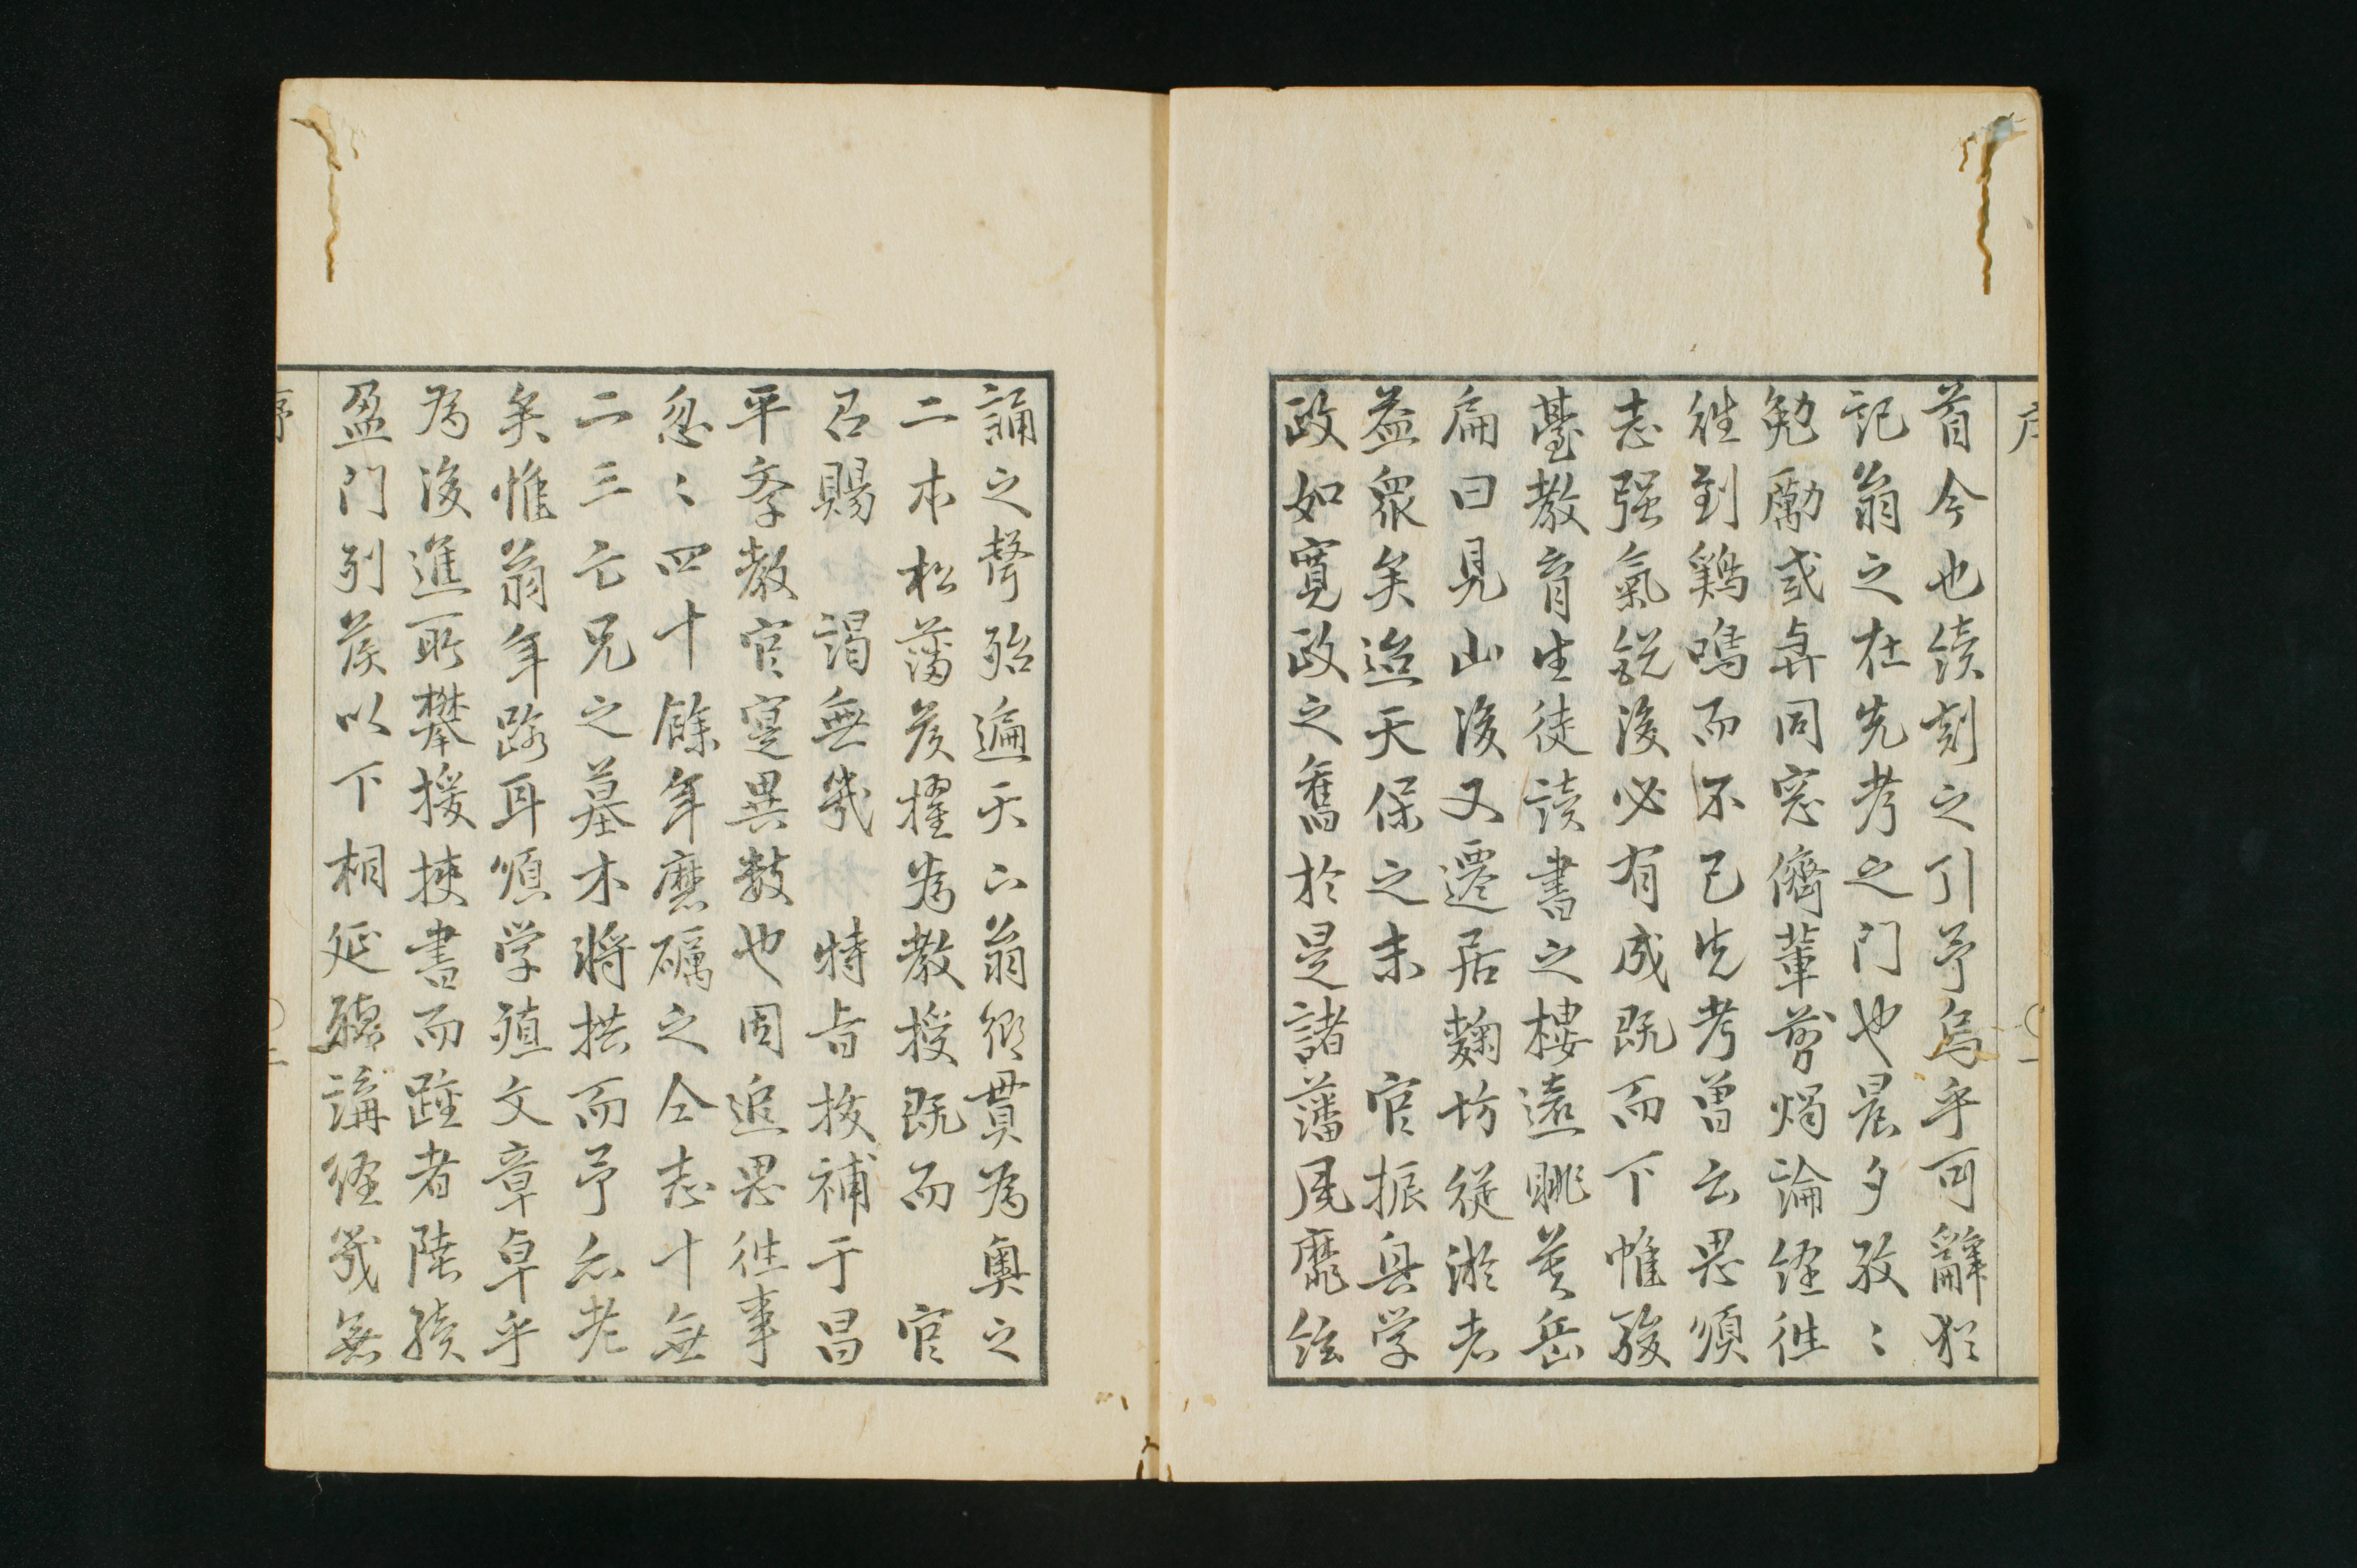 首今也続刻之引予烏乎可辭犹
記翁之在先考之門也晨夕孜〻
勉勵或与同窓儕輩剪燭論経徃
徃到鶏鳴而不已先考曽云思順
志强氣鋭後必有成既而下惟駿
臺教育生徒読書之樓遠眺芙岳
扁曰見山後又遷居麹坊從游者
益衆矣迨天保之末 官振興学
政如寛政之舊於是諸藩風靡絃
誦之聲殆遍天下翁郷貫為奥之
二本松藩侯擢為教授既而 官
召賜 謁無幾 特旨抜補于昌
平黌教官寔異数也因追思徃事
忽〻四十餘年磨礪之仝志十無
二三亡兄之墓木将拱而予亦老
矣惟翁年踰耳順学殖文章卓乎
為後進所攀援挾書而踵者陸続
盈門列侯以下相延聴講経幾無
序